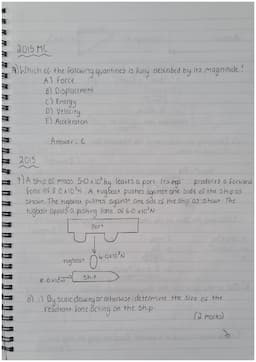 2015 MC
1) Which of the following quantities is fully described by its magnitude?
A) Force
B) Displacement
C) Energy
D) Velocity
E) Acceleration
Answer: C
2015
7) A ship of mass 5.0 x 10⁶ kg leaves a port. Its produces a forward
force of 8.0 x 10³ N. A tugboat pushes against one side of the ship as
shown. The tugboat pushes against one side of the ship as shown. The
tugboat applies a pushing force of 6.0 x 10³ N
Port
tugboat 6.0x10³N
8.0x10³N Ship
a) i) By scale drawing or otherwise determine the size of the
resultant force acting on the ship.
(2 marks)